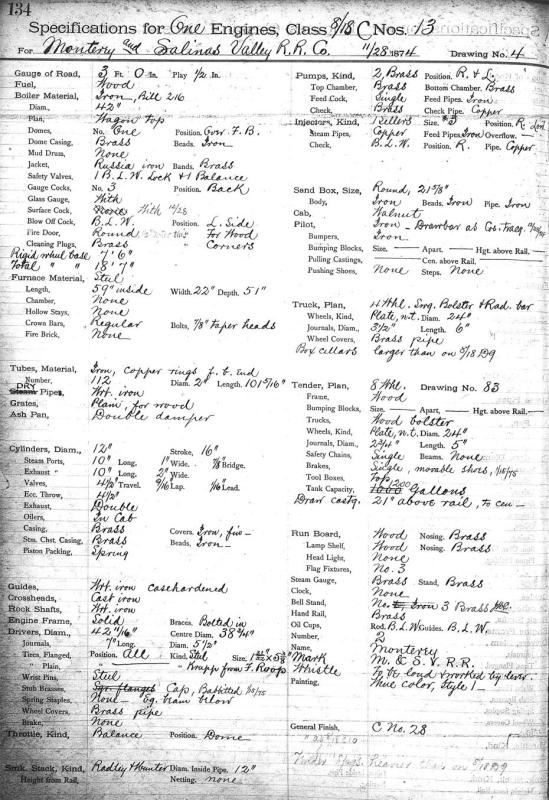 134
Specifications for One Engines, Class 8/18 C Nos. 13
For Monterey and Salinas Valley R.R. Co. 11/28 1874 Drawing No. 4
Gauge of Road, 3 Ft. 0 In. Play 1/2 In.
Fuel, Wood
Boiler Material, Iron, Bill 216
Diam., 42"
Plan, Wagon top
Domes, No. One Position Over F.B.
Dome Casing, Brass Beads, Iron
Mud Drum, None
Jacket, Russia iron Bands, Brass
Safety Valves, 1 B.L.W. Lock + 1 Balance
Gauge Cocks, No. 3 Position, Back
Glass Gauge, With
Surface Cock, None With
Blow Off Cock, B.L.W. Position, L. Side
Fire Door, Round For Wood
Cleaning Plugs, Brass " Corners
Rigid wheel base 7' 6"
Total " 18' 7"
Furnace Material, Steel
Length, 59" inside Width, 22" Depth, 51"
Chamber, None
Hollow Stays, None
Crown Bars, Regular Bolts, 7/8" taper heads
Fire Brick, None
Tubes, Material, Iron, copper rings f. b. end
Number, 112 Diam. 2" Length,
DRY
Steam Pipes, Wrt. iron
Grates, Plain, for wood
Ash Pan, Double damper
Cylinders, Diam., 12" Stroke, 16"
Steam Ports, 10" Long. 1" Wide. 7/8" Bridge.
Exhaust " 10" Long. 2" Wide.
Valves, 4 1/2" Travel. 9/16 Lap. 1/16" Lead.
Ecc. Throw, 4 1/2"
Exhaust, Double
Oilers, In Cab
Casing, Brass Covers, Iron,
Stm. Chst. Casing, Brass Beads, Iron
Piston Packing, Spring
Guides, Wrt. iron casehardened
Crossheads, Cast iron
Rock Shafts, Wrt. iron
Engine Frame, Solid Braces, Bolted in
Drivers, Diam., Centre Diam. 38 3/4"
Journals, 7" Long. Diam. 5 1/2"
Tires, Flanged, Position, All Kind, Steel
" Plain, " Krupp from F. Roop
Wrist Pins, Steel
Stub Brasses, Cap, Babbitted
Spring Staples, None Eq. beam below
Wheel Covers, Brass pipe
Brake, None
Throttle, Kind, Balance Position, Dome
Smk. Stack, Kind, Radley & Hunter Diam. Inside Pipe, 12"
Height from Rail, Netting, none
Pumps, Kind, 2, Brass Position, R. & L.
Top Chamber, Brass Bottom Chamber, Brass
Feed Cock, Single Feed Pipes, Iron
Check, Brass Check Pipe, Copper
Injectors, Kind, 1 Sellers Size, #3 Position, R.
Steam Pipes, Copper Feed Pipes, Iron Overflow,
Check, B.L.W. Position, R. Pipe, Copper
Sand Box, Size, Round,
Body, Iron Beads, Iron Pipe, Iron
Cab, Walnut
Pilot, Iron Drawbar as Co. tracg.
Bumpers, Iron
Bumping Blocks, Size. Apart, Hgt. above Rail.
Pulling Castings, Cen. above Rail.
Pushing Shoes, None Steps, None
Truck, Plan, 4 Whl. Swg. Bolster & Rad. bar
Wheels, Kind, Plate, n.t. Diam. 24"
Journals, Diam., 3 1/2" Length, 6"
Wheel Covers, Brass pipe
Box cellars larger than on 8/18 D9
Tender, Plan, 8 Whl. Drawing No. 83
Frame, Wood
Bumping Blocks, Size. Apart, Hgt. above Rail.
Trucks, Wood bolster
Wheels, Kind, Plate, n.t. Diam. 24"
Journals, Diam., 2 3/4" Length, 5"
Safety Chains, Single Beams, None
Brakes, Single, movable shoes,
Tool Boxes, Top
Tank Capacity, 1000 1200 gallons
Draw castg. 21" above rail, to cen
Run Board, Wood Nosing, Brass
Lamp Shelf, Wood Nosing, Brass
Head Light, None
Flag Fixtures, No. 3
Steam Gauge, Brass Stand, Brass
Clock, None
Bell Stand, Iron 3 Brass
Hand Rail, Brass
Oil Cups, Rod, B.L.W. Guides, B.L.W.
Number, 2
Name, Monterey
Mark M. & S. V. R. R.
Whistle To be loud & worked by lever.
Painting, Wine color, Style 1
General Finish, C No. 28
Tender spgs. heavier than on 8/18 D9